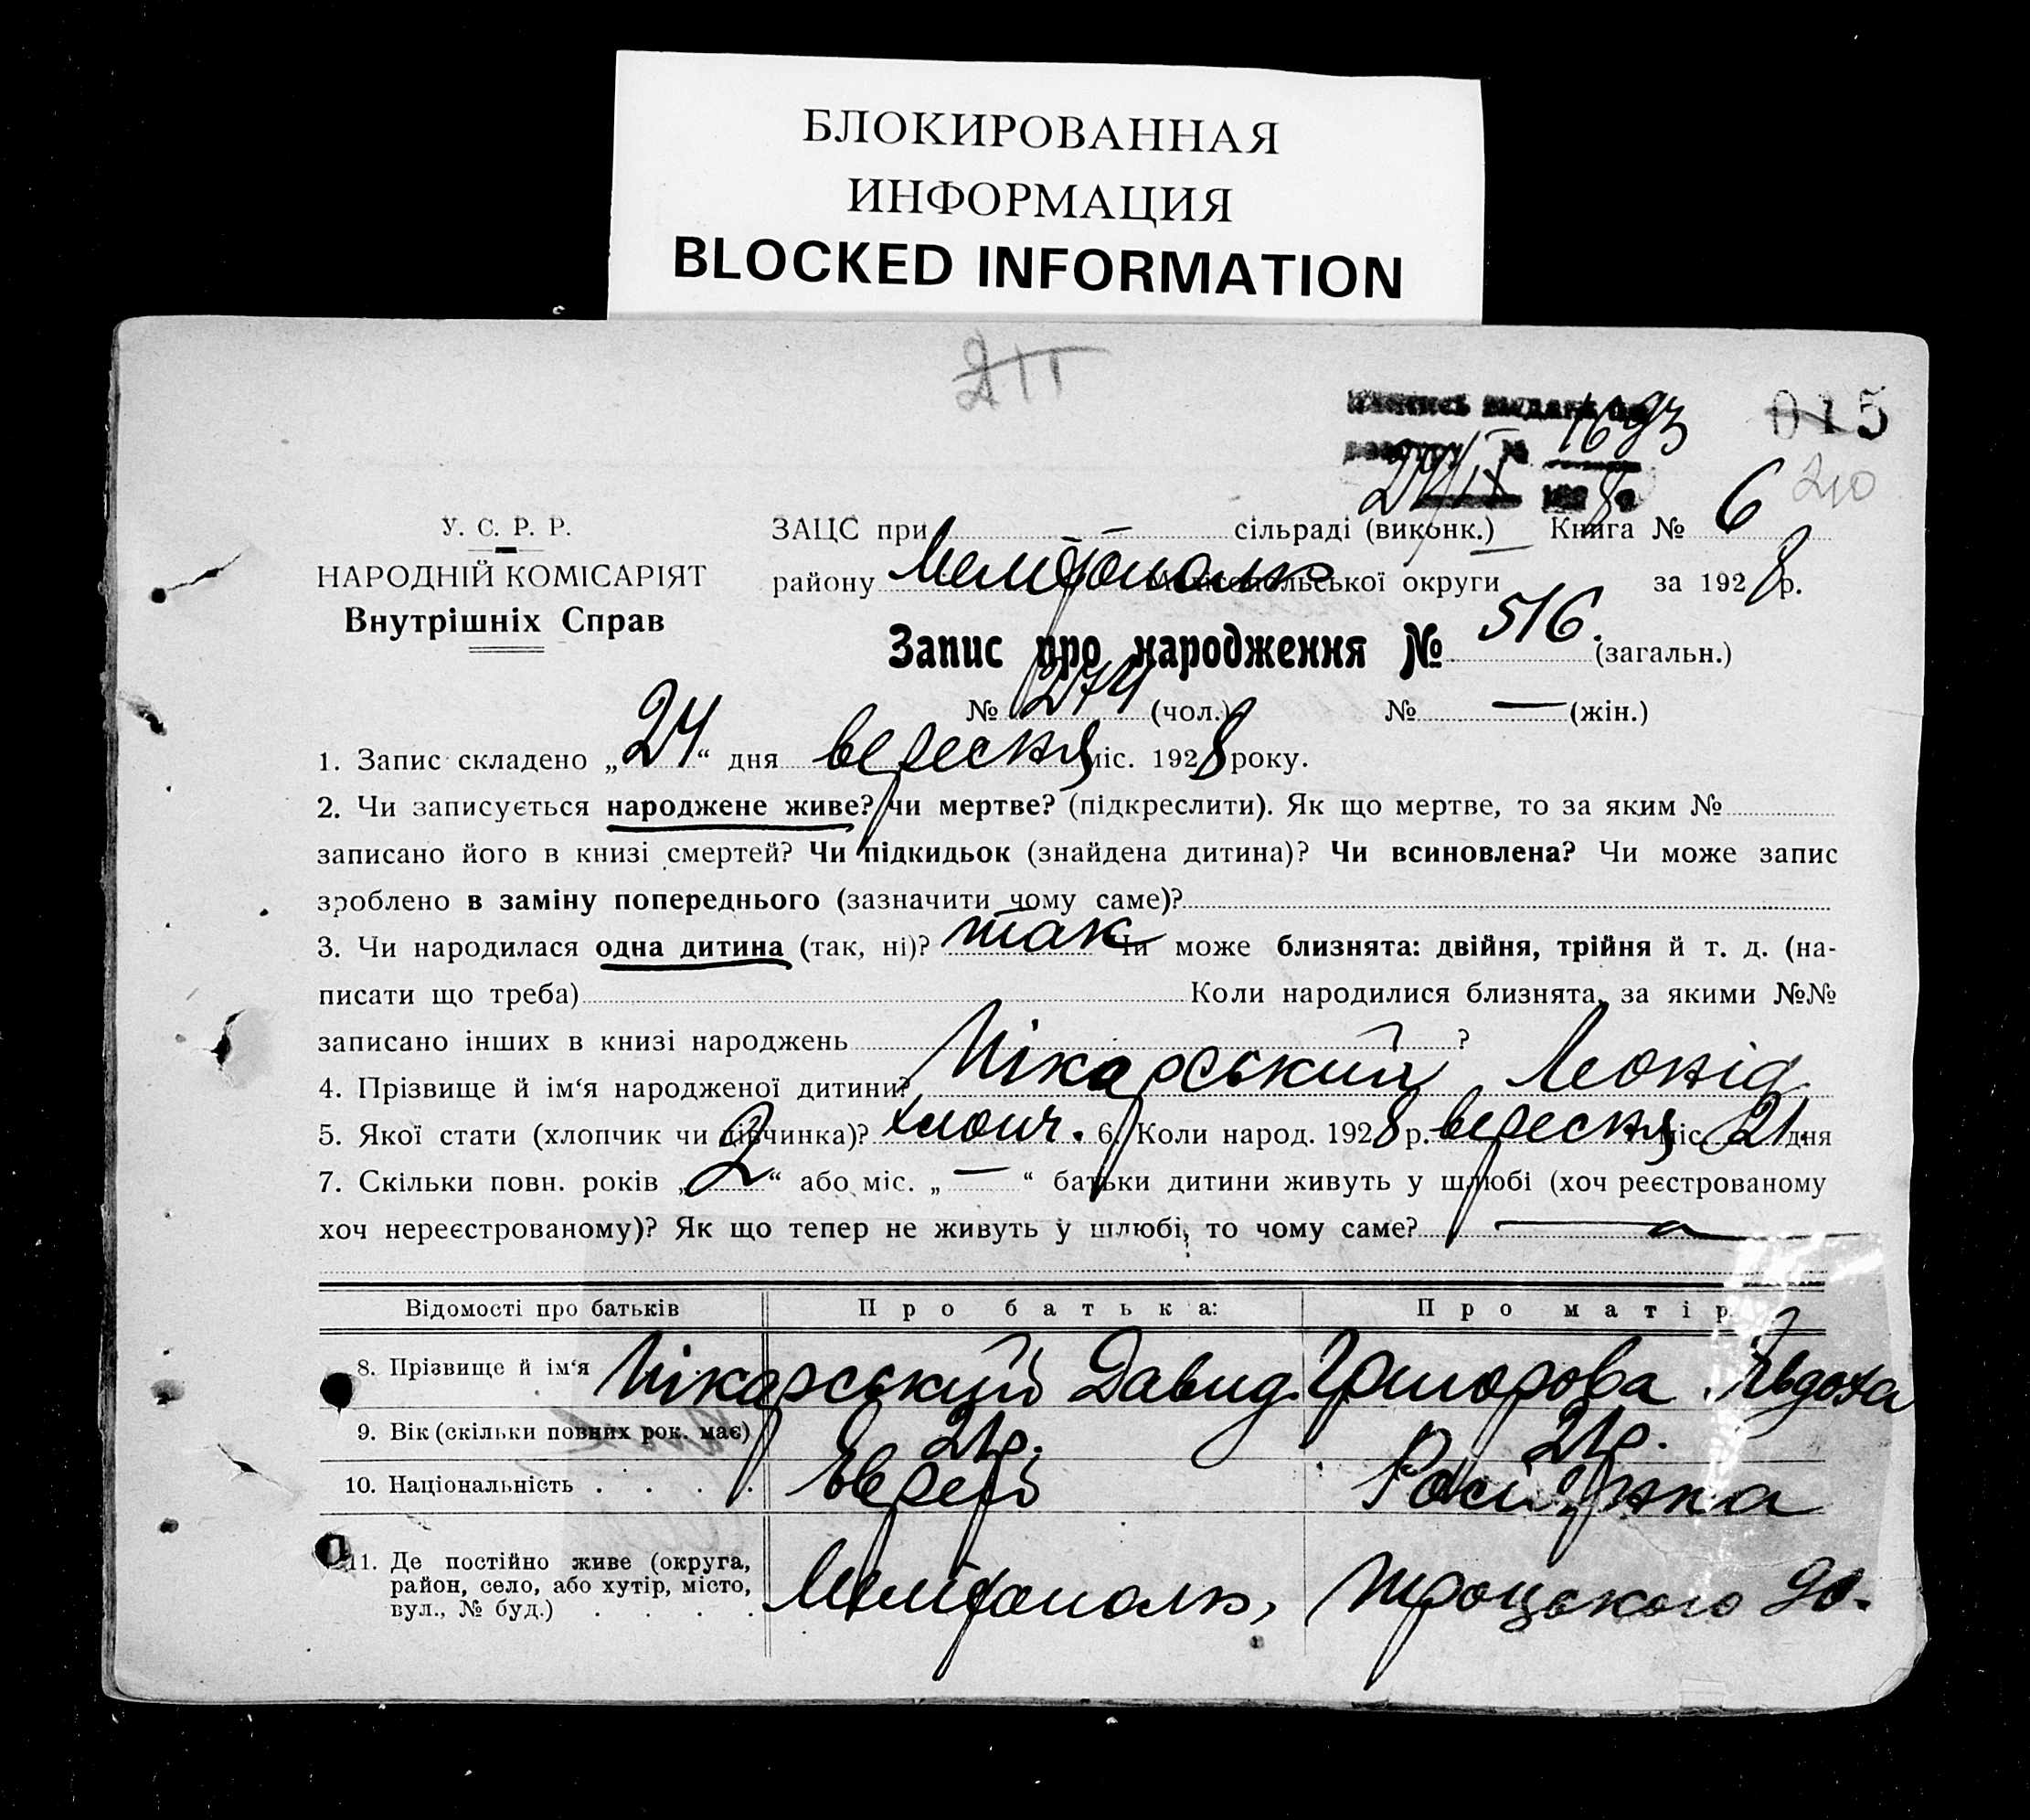 БЛОКИРОВАННАЯ
ИНФОРМАЦИЯ
BLOCKED INFORMATION
211
1693
015
24/IX 1928
210
У. С. Р. Р.
НАРОДНІЙ КОМІСАРІЯТ
Внутрішніх Справ
ЗАЦС при сільраді (виконк.) Книга № 6
району Мелітополь Мелітопольської округи за 1928 р.
Запис про народження № 516. (загальн.)
№ 274 (чол.) № — (жін.)
1. Запис складено „24“ дня вересня міс. 1928 року.
2. Чи записується народжене живе? чи мертве? (підкреслити). Як що мертве, то за яким №
записано його в книзі смертей? Чи підкидьок (знайдена дитина)? Чи всиновлена? Чи може запис
зроблено в заміну попереднього (зазначити чому саме)?
3. Чи народилася одна дитина (так, ні)? так Чи може близнята: двійня, трійня й т. д. (на-
писати що треба) Коли народилися близнята, за якими №№
записано інших в книзі народжень ?
4. Прізвище й ім‘я народженої дитини? Пікарський Леонід
5. Якої стати (хлопчик чи дівчинка)? хлопч. 6. Коли народ. 1928 р. вересня міс. 21. дня
7. Скільки повн. років „2“ або міс. „—“ батьки дитини живуть у шлюбі (хоч реєстрованому
хоч нереєстрованому)? Як що тепер не живуть у шлюбі, то чому саме? —
Відомості про батьків Про батька: Про матір
8. Прізвище й ім‘я Пікарський Давид. Григорова Явдоха
9. Вік (скільки повних рок. має) 21р. 21р.
10. Національність . . . . Єврей Росіянка
11. Де постійно живе (округа,
район, село, або хутір, місто,
вул., № буд.) . . . . Мелітополь, Троцького 90.